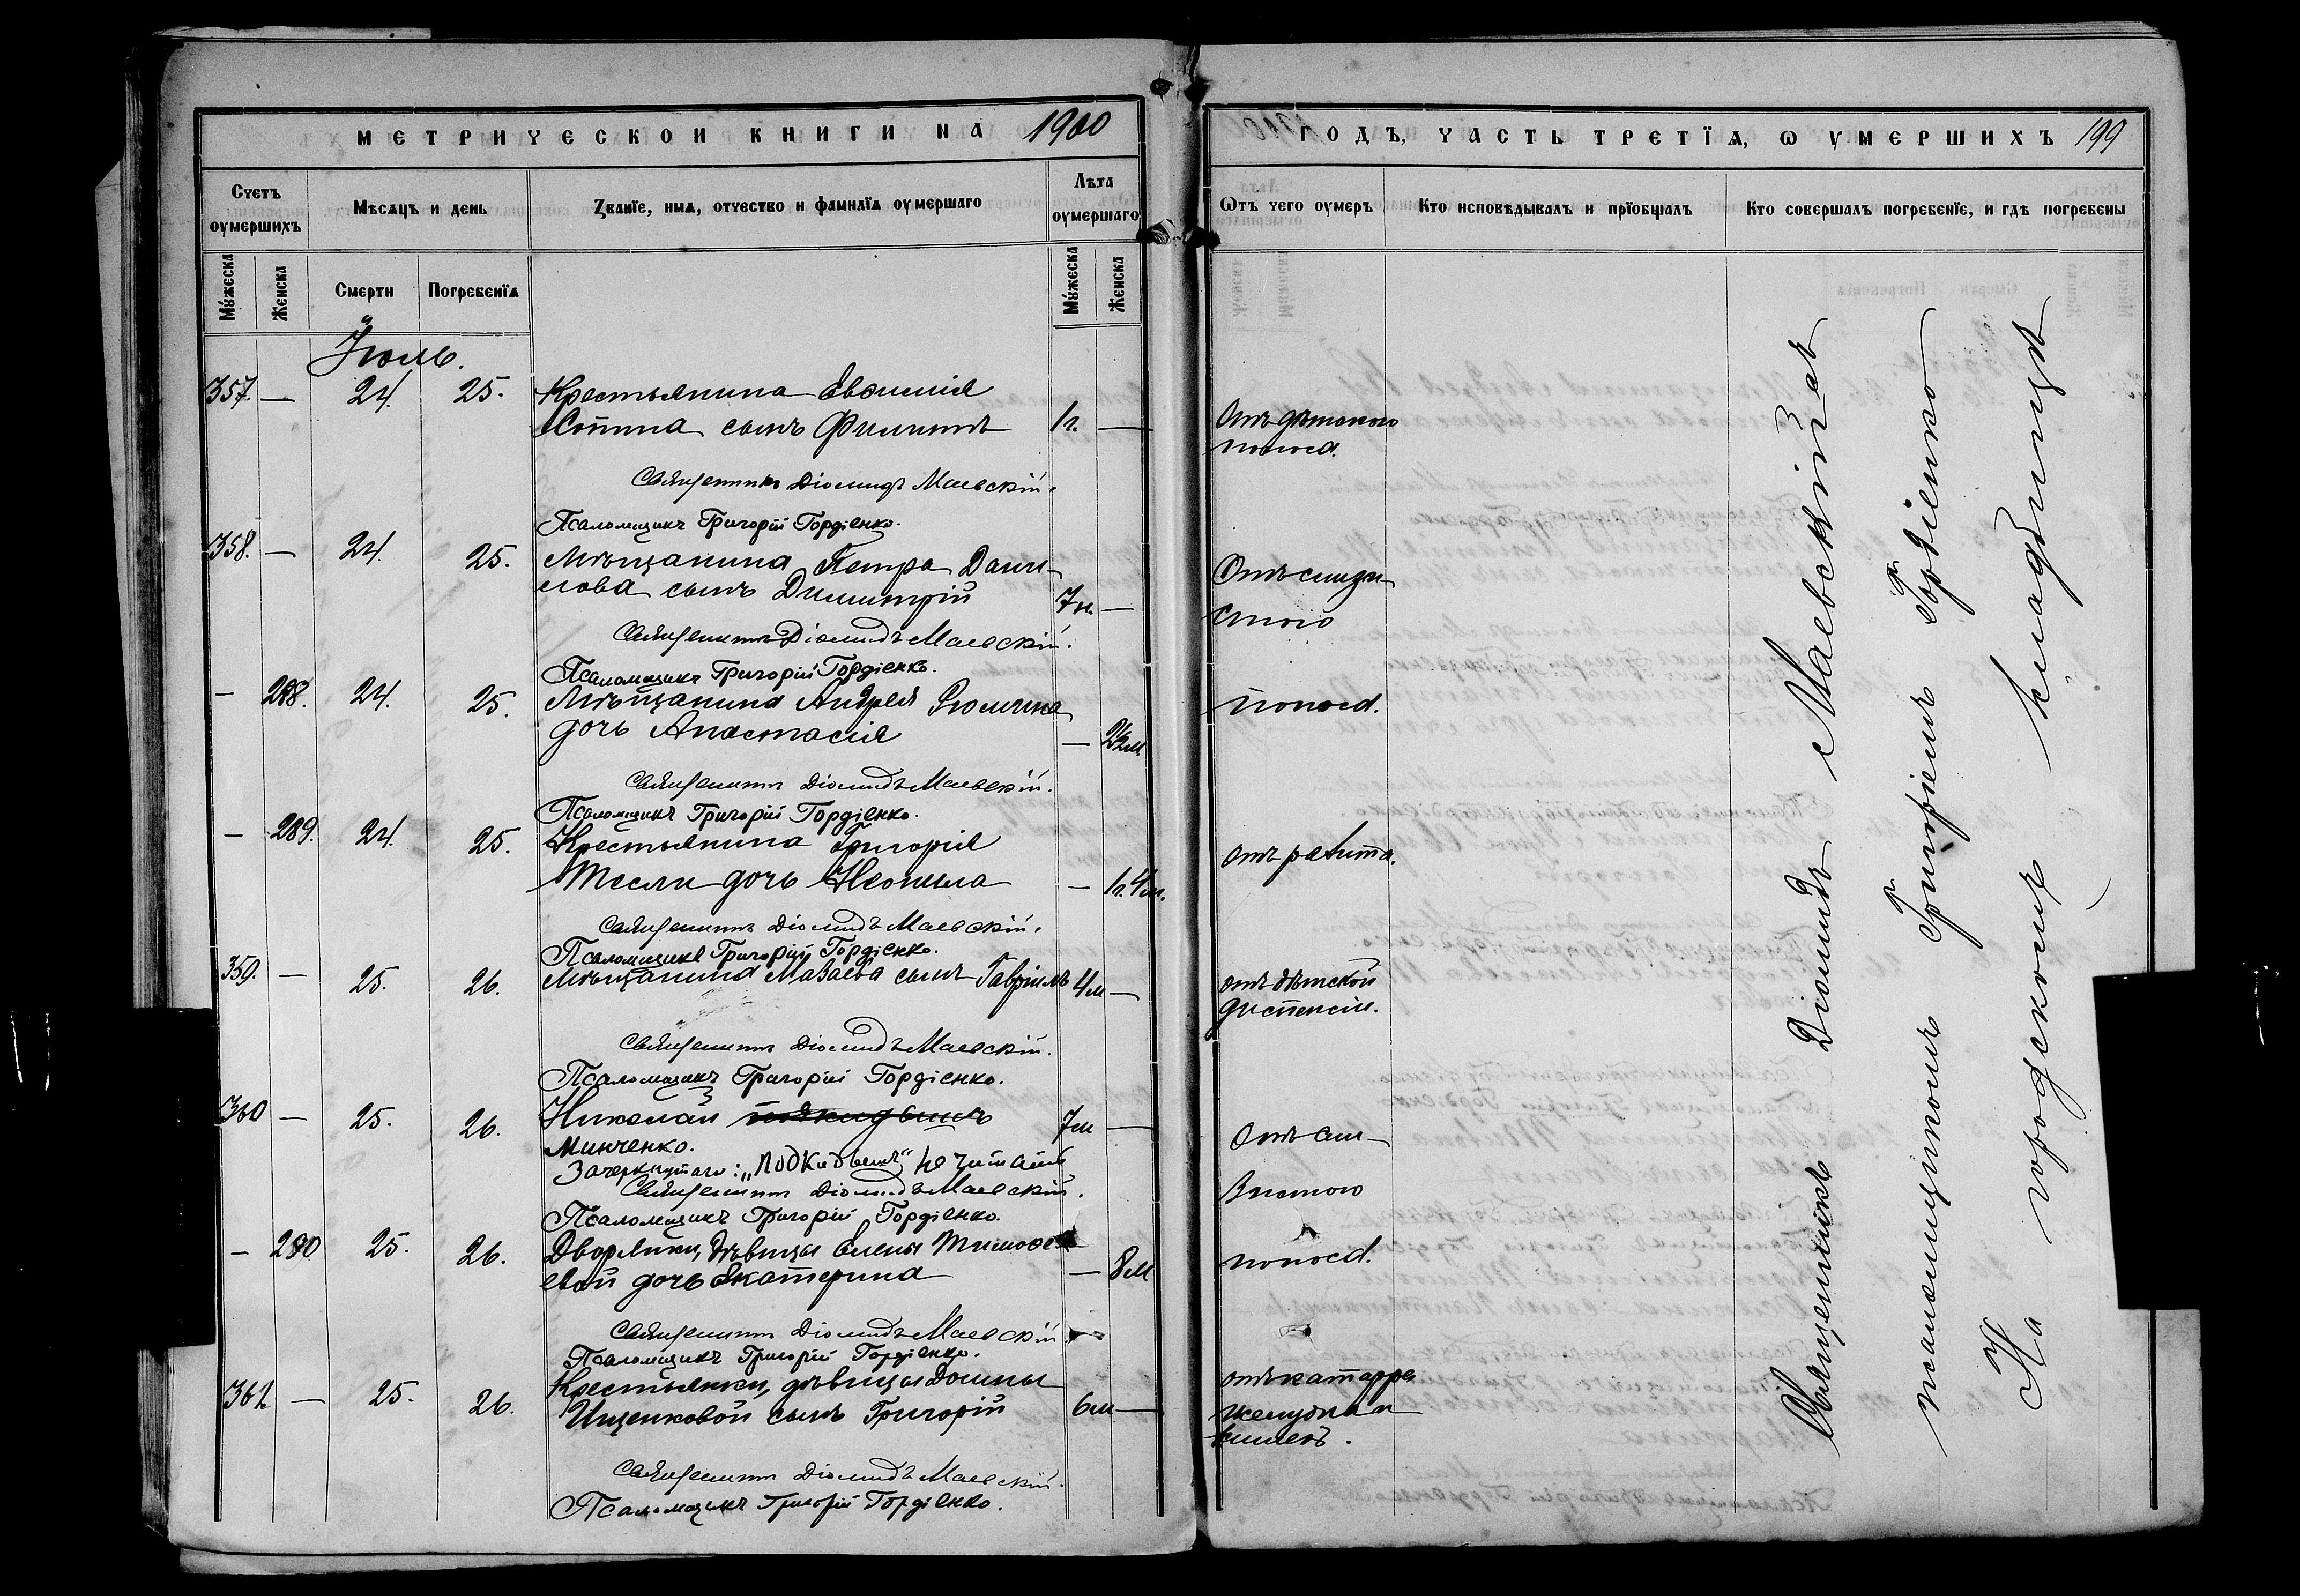 МЕТРИЧЕСКОЙ КНИГИ НА 1900
ГОДЪ, ЧАСТЬ ТРЕТІѦ, Ѡ УМЕРШИХЪ 199
Счетъ оумершихъ
Мѣсѧцъ и день
Званїе, имѧ, отчество и фамилїѧ оумершаго
Лѣта оумершаго
Ѿтъ чего оумеръ
Кто исповѣдывалъ и прїобщалъ
Кто совершалъ погребенїе, и гдѣ погребены
Мужеска
Женска
Смерти
Погребенїѧ
Мужеска
Женска
Іюль.
357. — 24. 25. Крестьянина Евѳимія
сынъ Филиппъ 1 г. —
Отъ дѣтскаго
поноса.
Священникъ Діомидъ Маевскій.
Псаломщикъ Григорій Гордіенко.
358. — 24. 25. Мѣщанина Петра Дани-
лова сынъ Димитрій 7 м. —
Отъ слизи-
стаго
Священникъ Діомидъ Маевскій.
Псаломщикъ Григорій Гордіенко.
— 288. 24. 25. Мѣщанина Андрея Рюмина
дочь Анастасія —
поноса.
Священникъ Діомидъ Маевскій.
Псаломщикъ Григорій Гордіенко.
— 289. 24. 25. Крестьянина Григорія
Тесли дочь Неонила — 1 г. 4 м.
отъ рахита.
Священникъ Діомидъ Маевскій.
Псаломщикъ Григорій Гордіенко.
359. — 25. 26. Мѣщанина Мазаева сынъ Гавріилъ 4 м —
отъ дѣтской
диспепсіи.
Священникъ Діомидъ Маевскій.
Псаломщикъ Григорій Гордіенко.
360 — 25. 26. Николай подкидышъ 7 м —
Минченко.
Зачеркнутаго: „подкидышъ" не читать
Отъ сли-
зистаго
Священникъ Діомидъ Маевскій.
Псаломщикъ Григорій Гордіенко.
— 290 25. 26. Дворянки, дѣвицы Елены Тимоѳе-
евой дочь Екатерина — 8 м
поноса.
Священникъ Діомидъ Маевскій
Псаломщикъ Григорій Гордіенко.
361. — 25. 26. Крестьянки, дѣвицы Домны
Ищенковой сынъ Григорій 6 м —
отъ катарра
желудка и
кишекъ.
Священникъ Діомидъ Маевскій.
Псаломщикъ Григорій Гордіенко.
Священникъ Діомидъ Маевскій съ
псаломщикомъ Григоріемъ Гордіенко
На городскомъ кладбищѣ